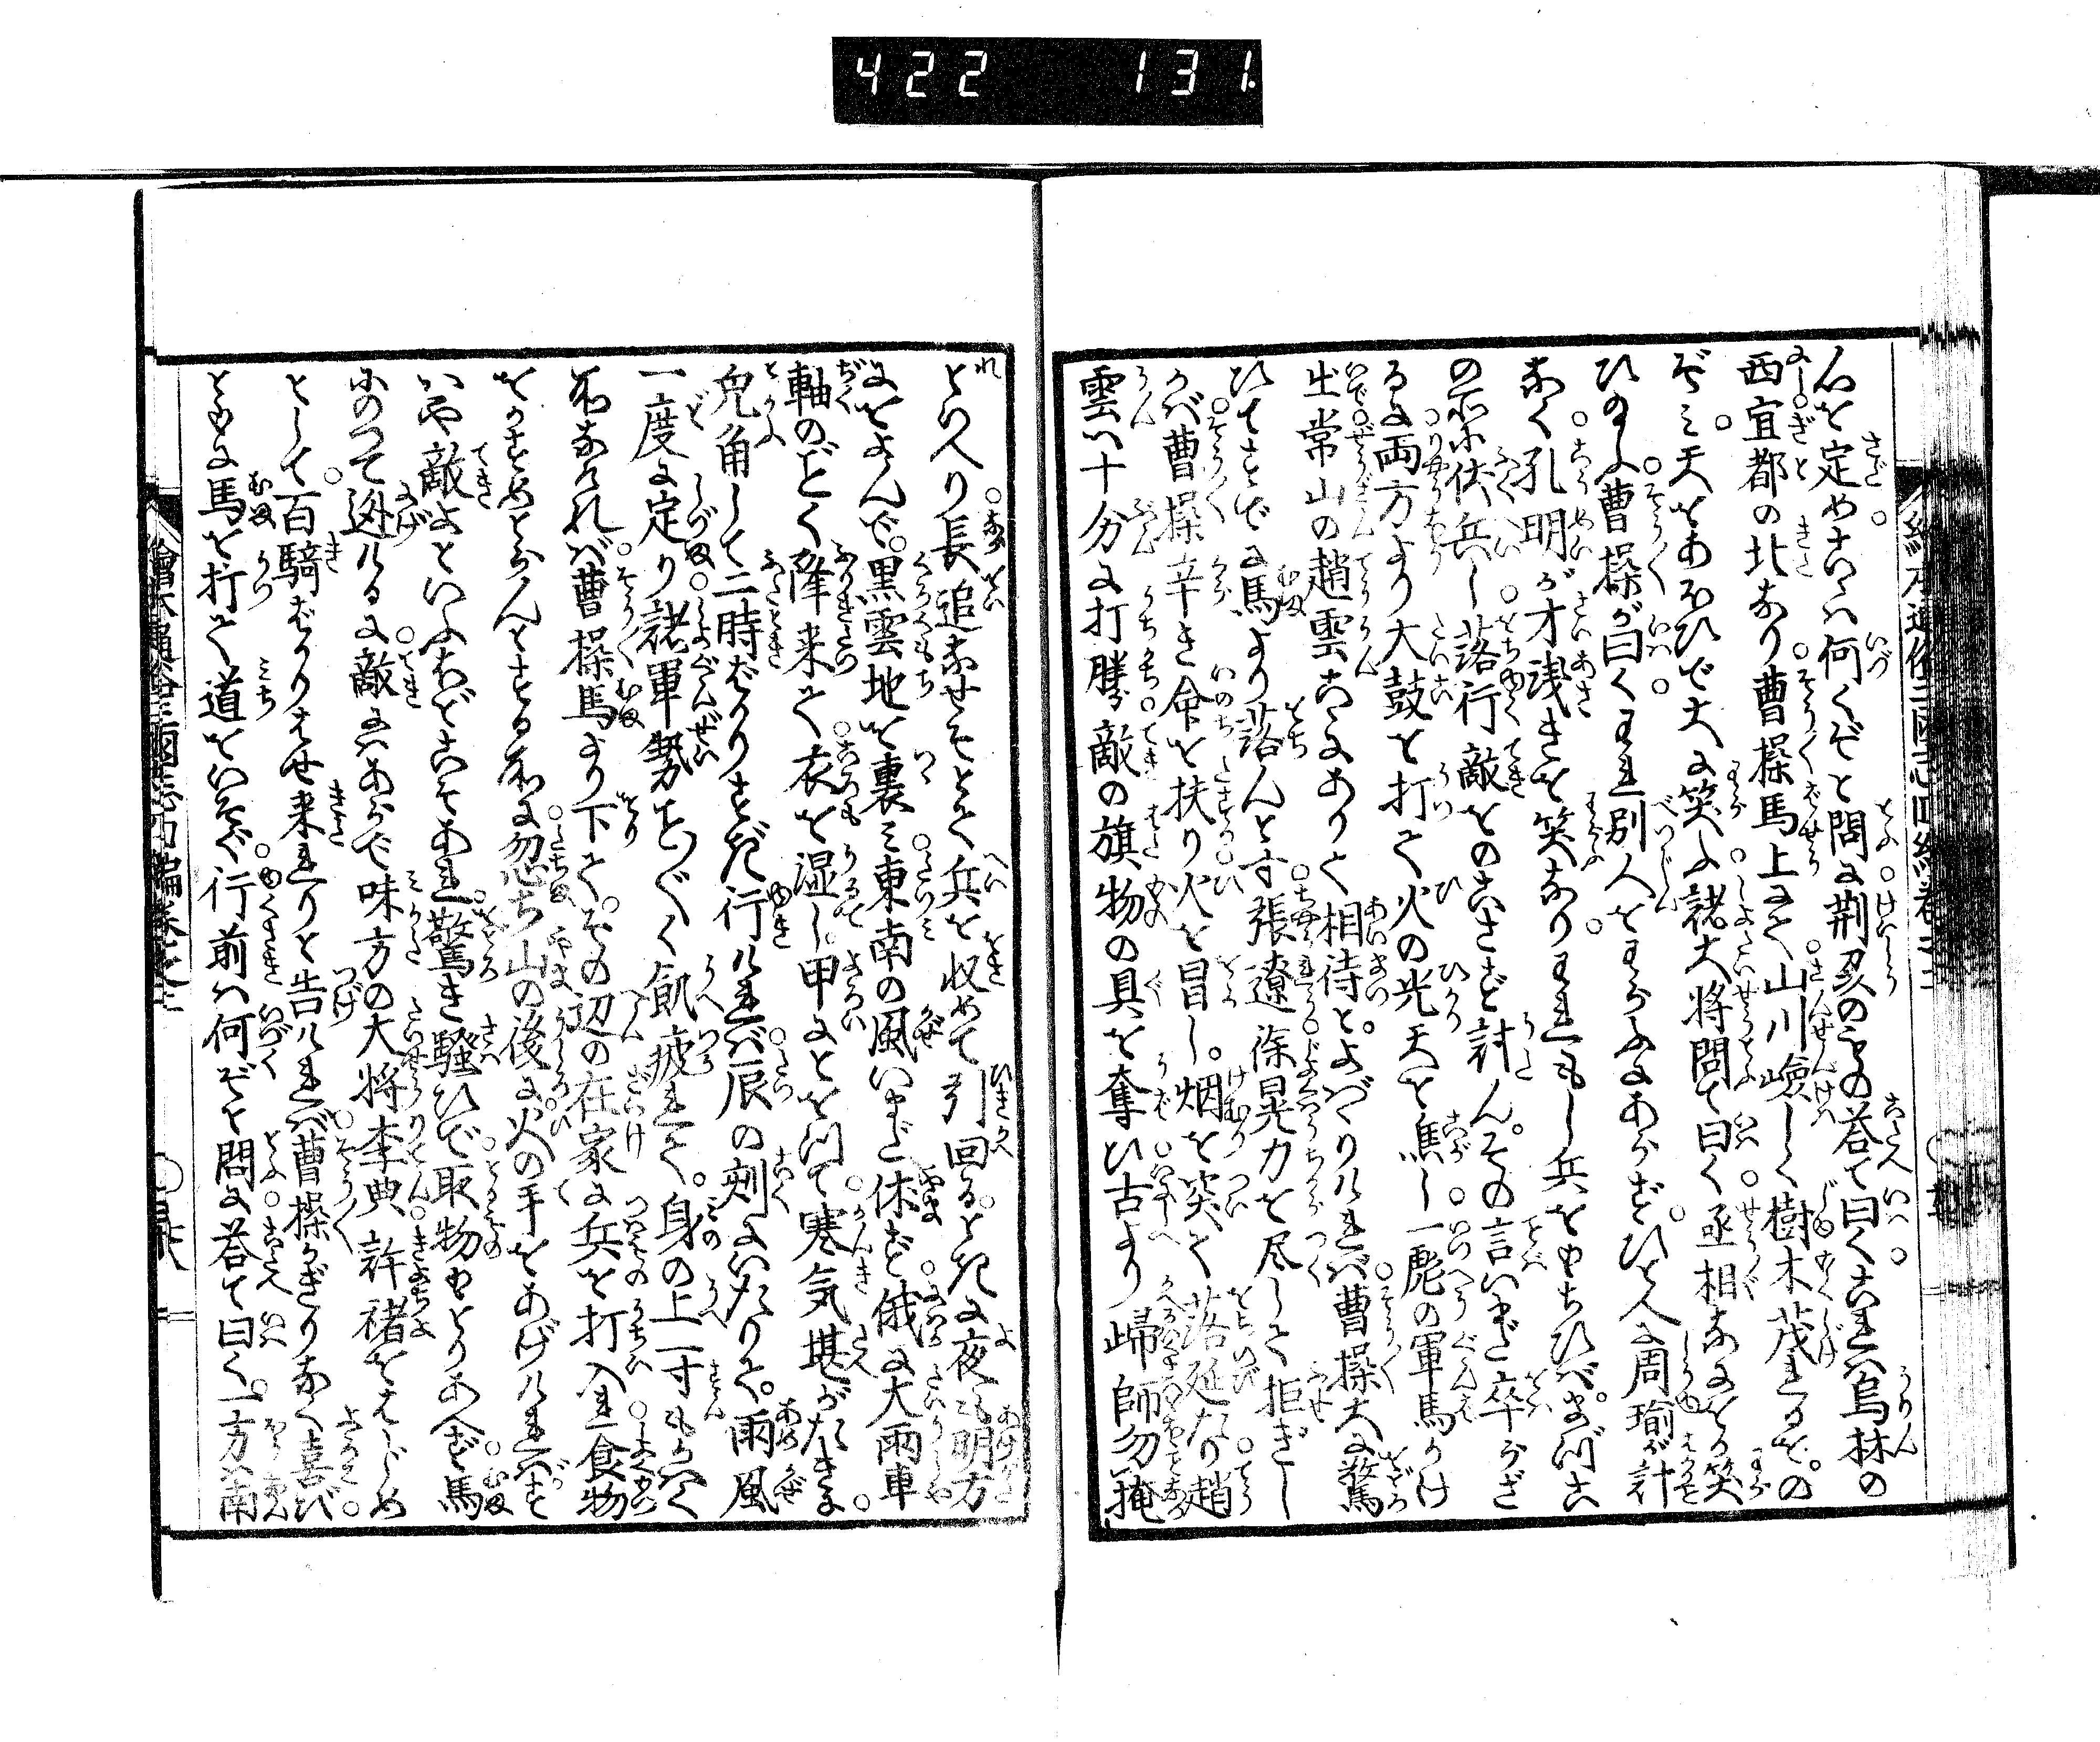 422 131
心を定めこゝハ何くぞと問に荊州のもの荅て曰くこれハ烏林の
西宜都の北なり曹操馬上にて山川嶮しく樹木茂れるをの
ぞミ天をあふひで大に笑ふ諸大将問て曰く丞相なにをか笑
ひ給ふ曹操が曰くわれ別人をわらふにあらずひとへに周瑜が計
なく孔明が才浅きを笑なりわれもし兵をもちひバまづこ
の所に伏兵し落行敵をのこさず討んその言いまだ卒らざ
るに両方より大鼓を打て火の光天を焦し一彪の軍馬かけ
出常山の趙雲こゝにありて相待とよバゝりけれバ曹操大に驚
ひてすでに馬より落んとす張遼徐晃力を尽して拒ぎし
かバ曹操辛き命を扶り火を冒し烟を突て落延たり趙
雲ハ十分に打勝敵の旗物の具を奪ひ古より歸師勿掩
といへり長追なせそとて兵を収めて引回るときに夜も明方
にをよんで黒雲地を裹ミ東南の風いまだ休ず俄に大雨車
軸のごとく降来て衣を湿し甲をとをつて寒気堪がたきに
兎角して二時ばかりすぎ行けれバ辰の刻にいたりて雨風
一度に定り諸軍勢ことごとく飢疲れて身の上一寸もかはく
所なけれバ曹操馬より下てその辺の在家に兵を打入れ食物
をかすめとらんとする所に忽ち山の後に火の手をあげけれハす
いや敵よといふほどこそあれ驚き騒ひで取物もとりあへず馬
にのつて逃けるに敵にハあらで味方の大将李典許褚をはじめ
として百騎ばかりはせ来れりと告けれバ曹操かぎりなく喜び
ともに馬を打て道をいそぎ行前ハ何ぞと問に荅て曰く一方ハ南